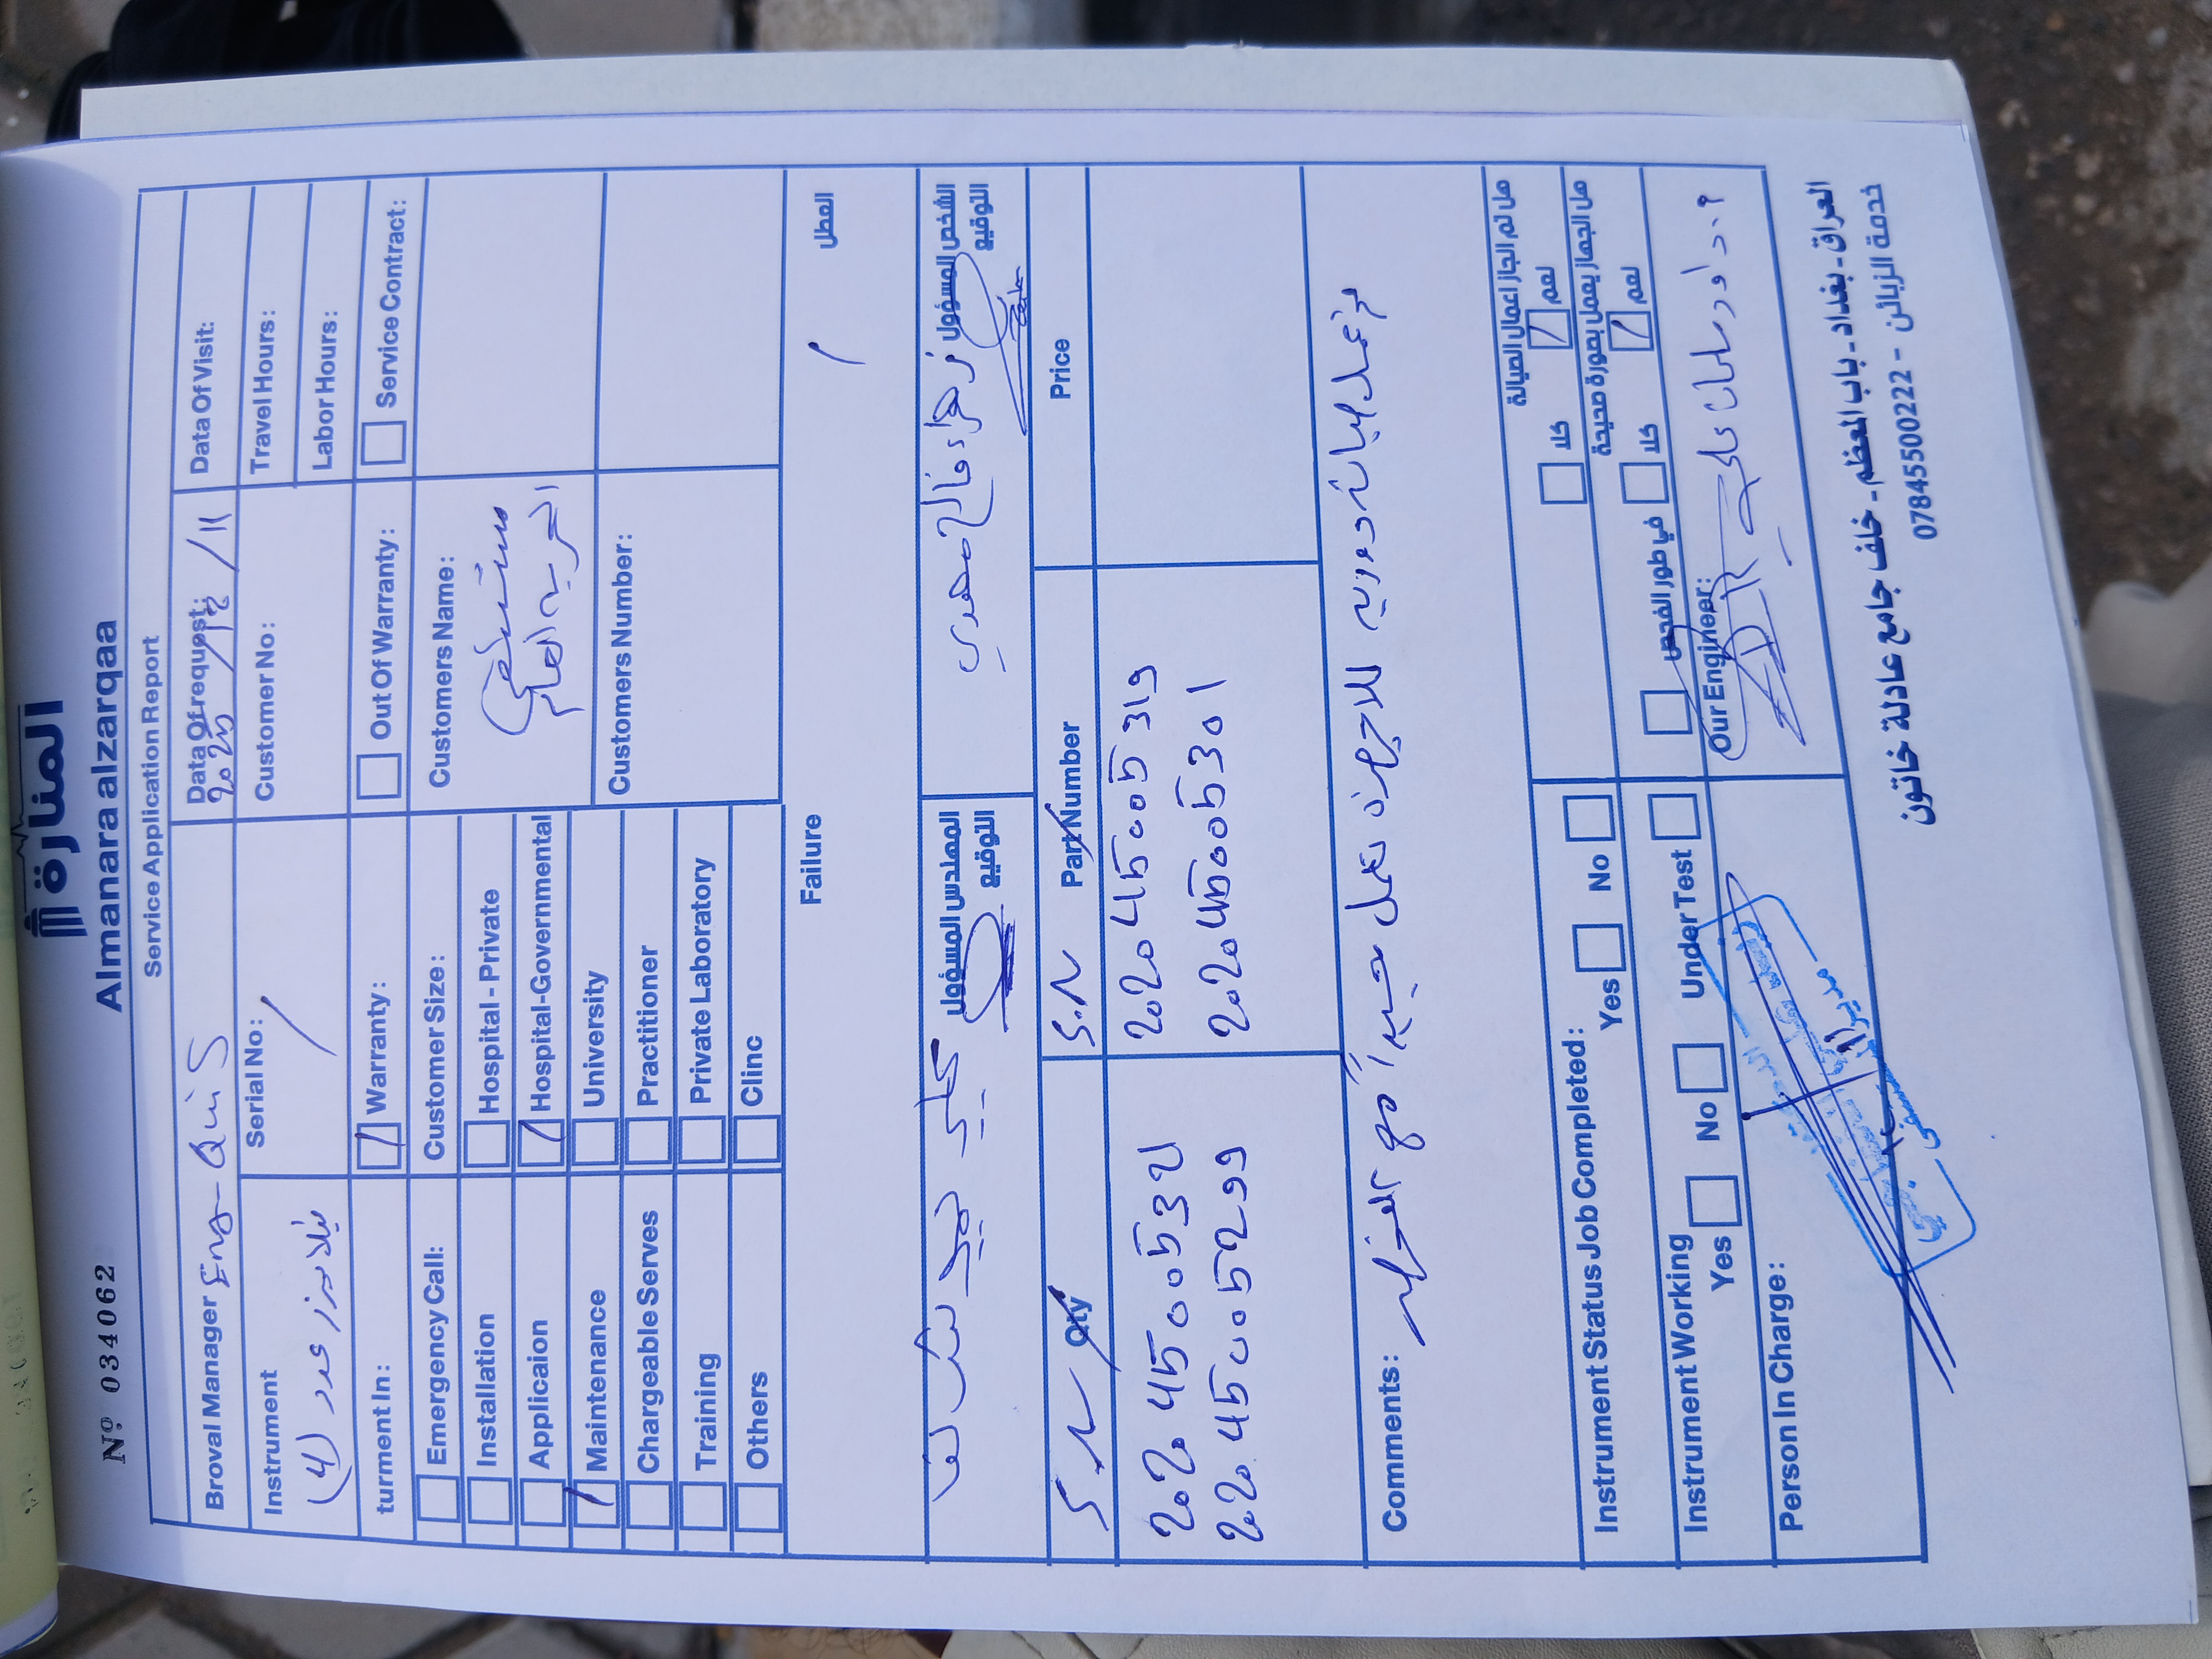 Nº 034062
المنارة
Almanara alzarqaa
Service Application Report
Broval Manager Eng- Qais
Data Of request: 2025/12/11
Data Of Visit:
Instrument
نيلايزر عدد (4)
Serial No: /
Customer No:
Travel Hours:
Labor Hours:
turment In:
Warranty:
Out Of Warranty:
Service Contract:
Emergency Call:
Installation
Applicaion
Maintenance
Chargeable Serves
Training
Others
Customer Size:
Hospital - Private
Hospital-Governmental
University
Practitioner
Private Laboratory
Clinc
Customers Name:
مستشفى
الحريه العام
Customers Number:
Failure
العطل
/
المهندس المسؤول
التوقيع
الشخص المسؤول
التوقيع
زهراء فالح مهدي
S.N Qty
S.N Part Number
Price
2020450053
2020450053 19
202045005299
202045005301
Comments:
تم عمل صيانة دورية للاجهزة تعمل جيداً مع التقدير
Instrument Status Job Completed:
Yes No
هل تم انجاز اعمال الصيانة
كلا نعم
Instrument Working
Yes No Under Test
هل الجهاز يعمل بصورة صحيحة
في طور الفحص كلا نعم
Person In Charge:
Our Engineer:
م. داود سلمان علي
العراق - بغداد - باب المعظم - خلف جامع عادلة خاتون
خدمة الزبائن - 07845500222